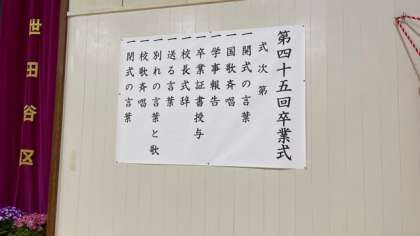 第四十五回卒業式
式次第
一開式の言葉
一国歌斉唱
一学事報告
一卒業証書授与
一校長式辞
一送る言葉
一別れの言葉と歌
一校歌斉唱
一閉式の言葉
世田谷区